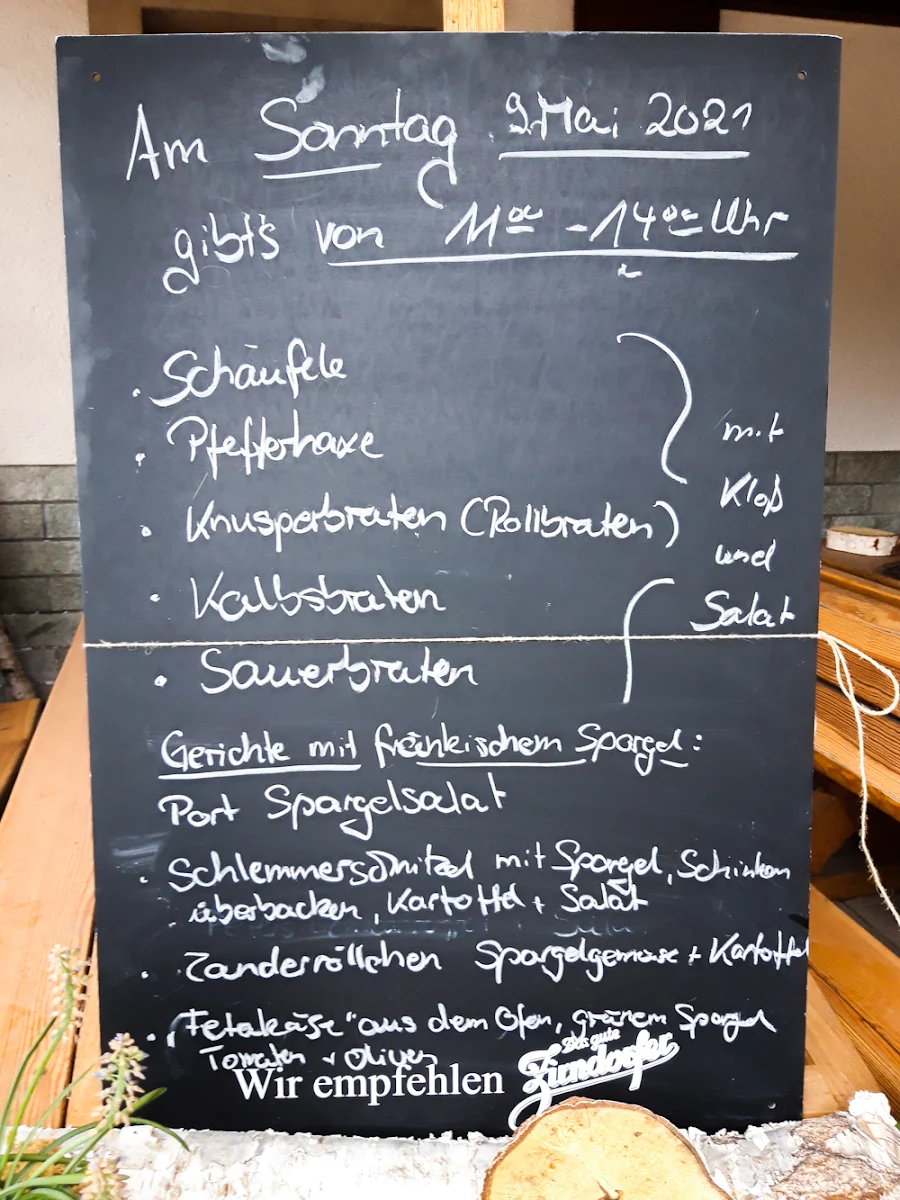 Am Sonntag 9. Mai 2021
gibt's von 11⁰⁰ - 14⁰⁰ Uhr
· Schäufele
· Pfefferhaxe
· Knusperbraten (Rollbraten)
· Kalbsbraten
· Sauerbraten
mit
Kloß
und
Salat
Gerichte mit fränkischem Spargel:
Port Spargelsalat
· Schlemmerschnitzel mit Spargel, Schinken
überbacken, Kartoffel + Salat
· Zanderröllchen Spargelgemüse + Kartoffel
· „Fetakäse" aus dem Ofen, grünem Spargel
Tomaten + Oliven
Wir empfehlen
Das gute
Zirndorfer